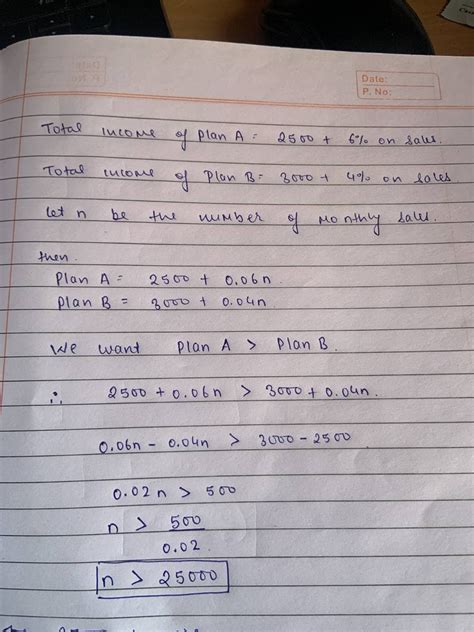 Date:
P. No:
Total income of plan A = 2500 + 6% on sales.
Total income of Plan B = 3000 + 4% on sales
Let n be the number of monthly sales.
then.
Plan A = 2500 + 0.06n
Plan B = 3000 + 0.04n
We want Plan A > Plan B.
∴ 2500 + 0.06n > 3000 + 0.04n.
0.06n - 0.04n > 3000 - 2500
0.02n > 500
n > 500
0.02.
n > 25000